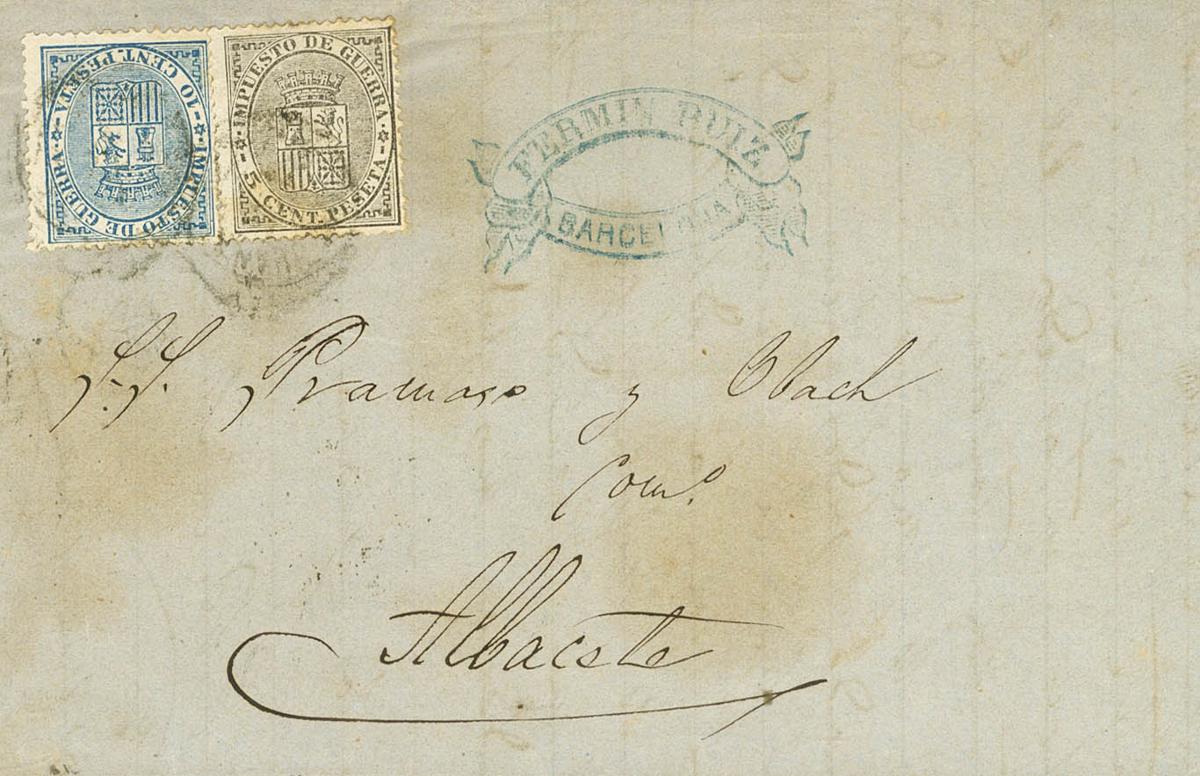 IMPUESTO DE GUERRA
10 CENT. PESETA
IMPUESTO DE GUERRA
5 CENT. PESETA
FERMIN RUIZ
BARCELONA
S.S. Pramaso y Obach
Comº
Albacete